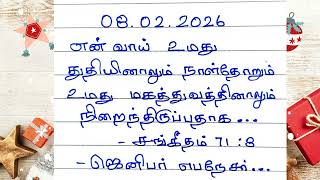 08.02.2026
என் வாய் உமது
துதியினாலும் நாள்தோறும்
உமது மகத்துவத்தினாலும்
நிறைந்திருப்பதாக...
- சங்கீதம் 71:8
- ஜெனிபர் யநேசர்...